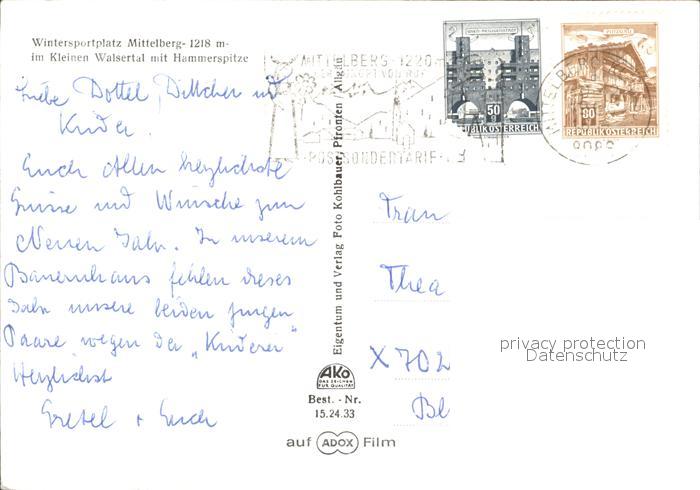 Wintersportplatz Mittelberg - 1218 m -
im Kleinen Walsertal mit Hammerspitze
Liebe Dottel, Dittchen und
Kinder.
Euch Allen herzlichste
Grüsse und Wünsche zum
Neuen Jahr. In unserem
Bauernhaus fehlen dieses
Jahr unsere beiden jungen
Paare wegen der „Kinderer"
Herzlichst
Gretel + Erich
Eigentum und Verlag Foto Kohlbauer, Pfronten Allgäu
AKO
DAS ZEICHEN
FÜR QUALITÄT
Best. - Nr.
15.24.33
auf ADOX Film
MITTELBERG - 1220 m
KURORT VON RUF
POSTSONDERTARIF
50 g
REPUBLIK ÖSTERREICH
80 g
REPUBLIK ÖSTERREICH
MITTELBERG
Frau
Thea
X 702
Bl
privacy protection
Datenschutz